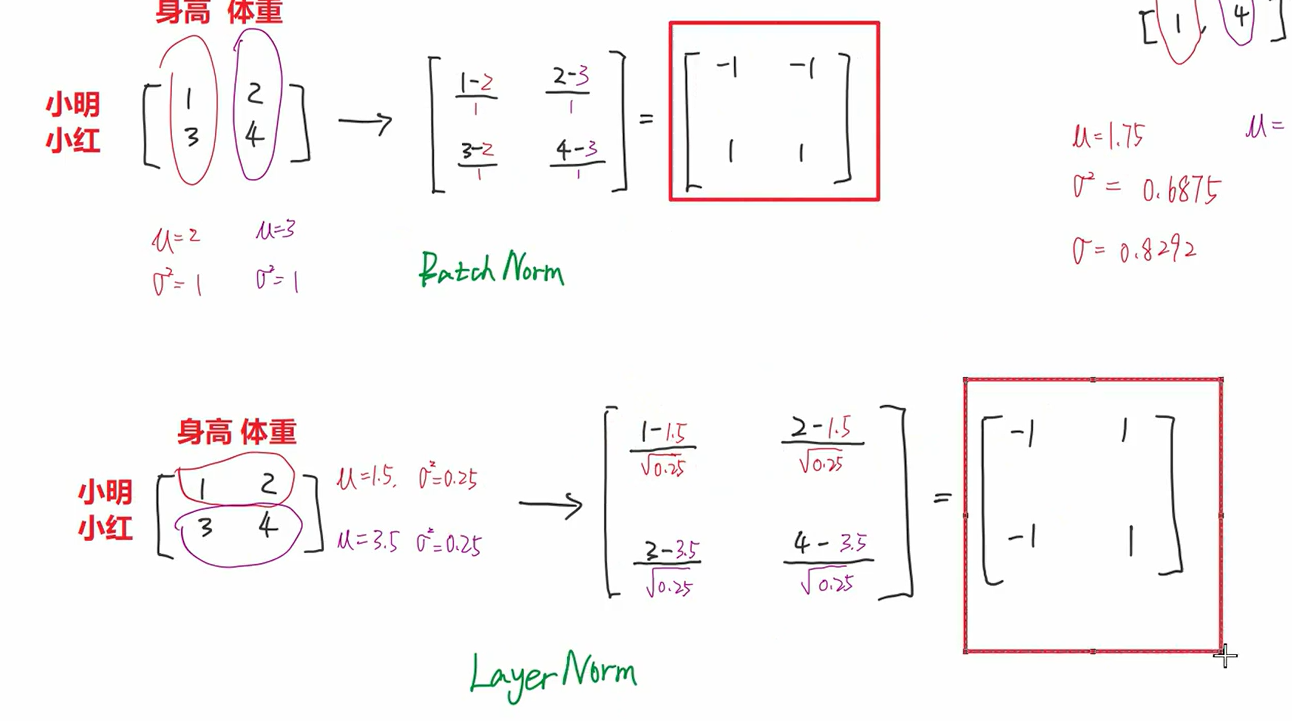 身高 体重
小明 [1 2
小红 3 4]
→
[(1-2)/1 (2-3)/1
(3-2)/1 (4-3)/1]
=
[-1 -1
1 1]
μ=2 μ=3
σ²=1 σ²=1
BatchNorm
[1, 4]
μ=1.75 μ=
σ²= 0.6875
σ=0.8292
身高 体重
小明 [1 2 μ=1.5, σ²=0.25
小红 3 4] μ=3.5 σ²=0.25
→
[(1-1.5)/√0.25 (2-1.5)/√0.25
(3-3.5)/√0.25 (4-3.5)/√0.25]
=
[-1 1
-1 1]
LayerNorm